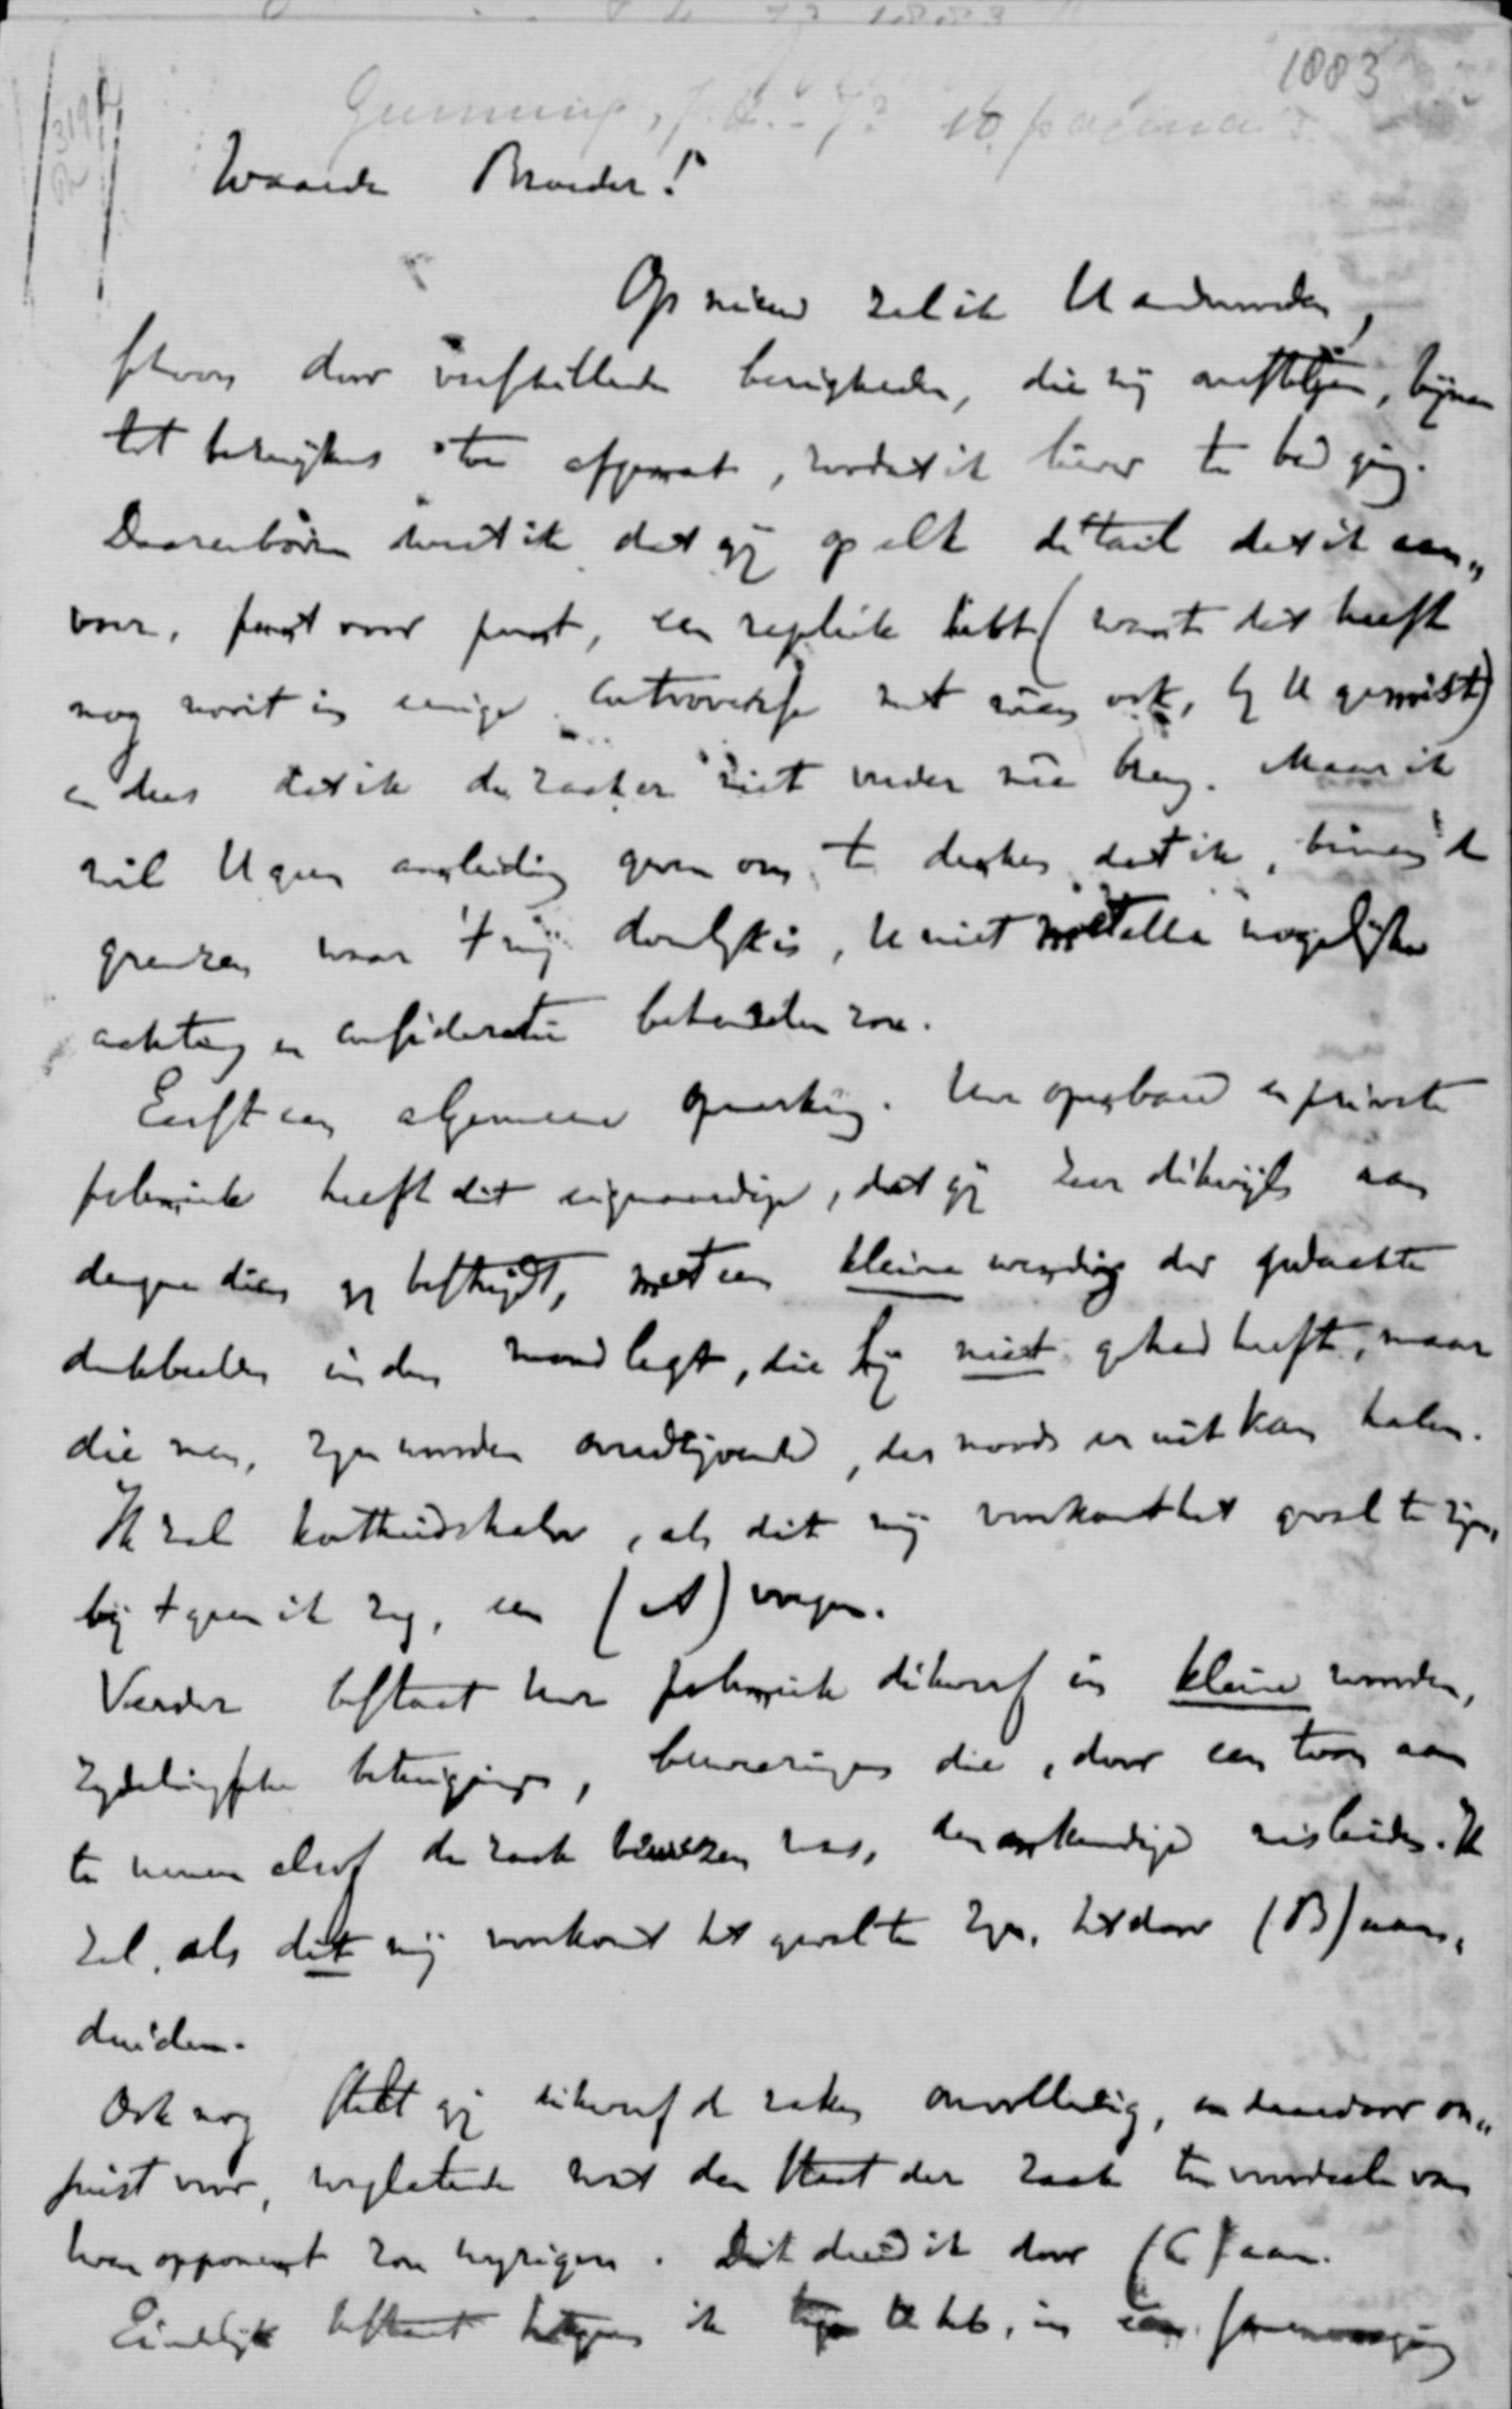 1883
Gunning, J.H. - J? 10 pagina's
Waarde Broeder!
Op nieuw zal ik U antwoorden,
schoon door verschillende bezigheden, die zij aanstelgen, bijna
tot bezwijkens toe afgemat, zoodat ik liever te bed ging.
Daarenboven weet ik dat gij op elk détail dat ik aan„
voer, punt voor punt, een repliek hebt (want dit heeft
nog nooit in eenige controverse met wien ook, bij U gemist)
en dus dat ik de zaak er niet verder mee breng. Maar ik
wil U geen aanleiding geven om te denken dat ik, binnen de
grenzen waar 't mij doenlijk is, U niet met alle mogelijke
achting en consideratie behandelen zou.
Eerst een algemeene opmerking. Uw openbare en private
polemiek heeft dit eigenaardige, dat gij zeer dikwijls aan
dengeen dien gij bestrijdt, met een kleine wending der gedachte
denkbeelden in den mond legt, die hij niet gehad heeft, maar
die men, zijn woorden overdrijvende, des noods er uit kan halen.
Ik zal kortheidshalve, als dit mij voorkomt het geval te zijn,
bij 't geen ik zeg, een (A) voegen.
Verder bestaat uw polemiek dikwerf in kleine wonden,
zijdelingsche betuigingen, beweringen die, door een toon aan
te nemen alsof de zaak bewezen was, den onkundige misleiden. Ik
zal, als dit mij voorkomt het geval te zijn, het door (B) aan„
duiden.
Ook nog stelt gij dikwerf de zaken onvolledig, en daardoor on„
juist voor, weglatende wat den staat der zaak ten voordeele van
uwen opponent zou wijzigen. Dit duid ik door (C) aan.
Eindelijk bestaat hetgeen ik tegen U heb, in een